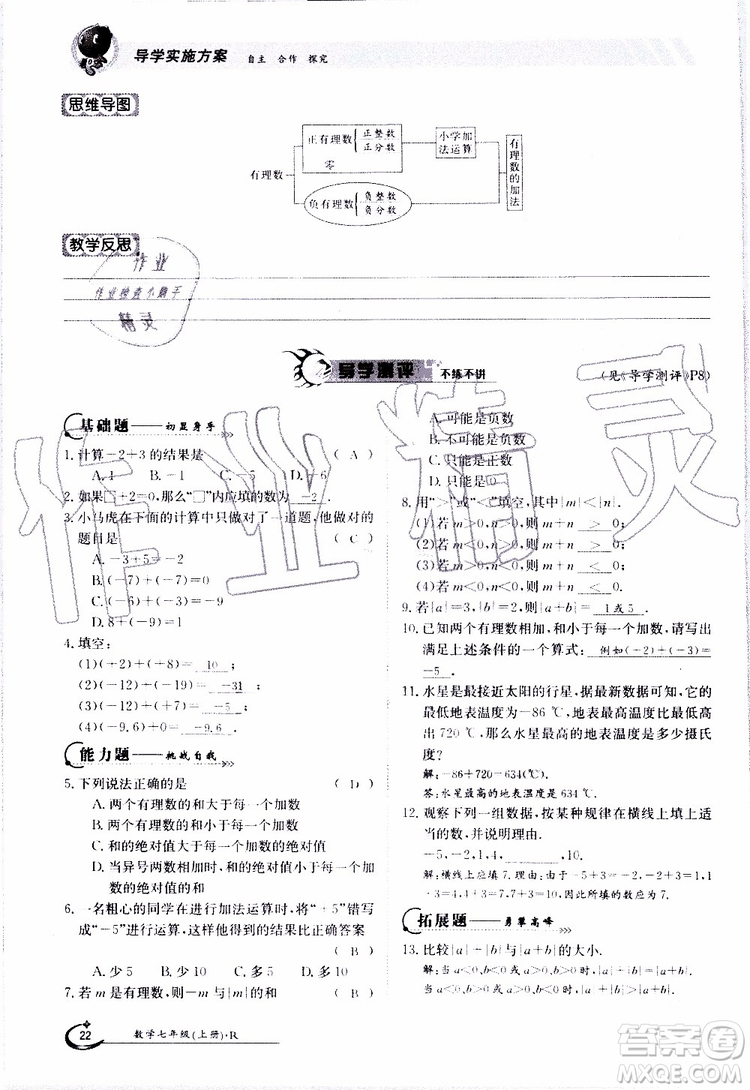 导学实施方案 自主 合作 探究
思维导图
有理数
正有理数
正整数
正分数
零
负有理数
负整数
负分数
小学加法运算
有理数的加法
教学反思
作业
作业检查小助手
精灵
导学测评 不练不讲 (见《导学测评》P8)
基础题——初显身手
1. 计算-2+3的结果是 ( A )
A. 1 B. -1 C. -5 D. -6
2. 如果□+2=0,那么“□”内应填的数为 -2 .
3. 小马虎在下面的计算中只做对了一道题,他做对的
题目是 ( C )
A. -3+5=-2
B. (-7)+(-7)=0
D. 8+(-9)=1
4. 填空:
(1)(+2)+(+8)= 10 ;
(2)(-12)+(-19)= -31 ;
(3)(-14)+9= -5 ;
(4)(-9.6)+0= -9.6 .
能力题——挑战自我
5. 下列说法正确的是
A. 两个有理数的和大于每一个加数
C. 和的绝对值大于每一个加数的绝对值
D. 当异号两数相加时,和的绝对值小于两个加数的
绝对值的和
6. 一名粗心的同学在进行加法运算时,将“+5”错写
成“-5”进行运算,这样他得到的结果比正确答案
( B )
A. 少5 B. 少10 C. 多5 D. 多10
7. 若m是有理数,则-m与|m|的和
A. 可能是负数
B. 不可能是负数
C. 只能是正数
D. 只能是0
8. 用“>”或“<”填空,其中|m|>|n|.
(1)若m>0,n>0,则m+n > 0;
(2)若m<0,n<0,则m+n < 0;
(3)若m>0,n<0,则m+n > 0;
(4)若m<0,n>0,则m+n < 0.
9. 若|a|=3,|b|=2,则|a+b|= 1或5 .
10. 已知两个有理数相加,和小于每一个加数,请写出
满足上述条件的一个算式: 例如(-2)+(-3)=
-5 .
11. 水星是最接近太阳的行星,据最新数据可知,它的
最低地表温度为-86 ℃,地表最高温度比最低高
出720 ℃,那么水星最高地表温度有多少摄氏
度?
解:-86+720=634(℃)
答:水星最高的地表温度是634 ℃.
12. 观察下列一组数据,按某种规律在横线上填上适
当的数,并说明理由.
-5,-2,1,4, ,10.
解:横线上应填7.理由:-5+3=-2,-2+3=1,
1+3=4,4+3=7,7+3=10,故所填的数应为7.
拓展题——勇攀高峰
13. 比较|a|+|b|与|a+b|的大小.
22 数学七年级(上册)·R